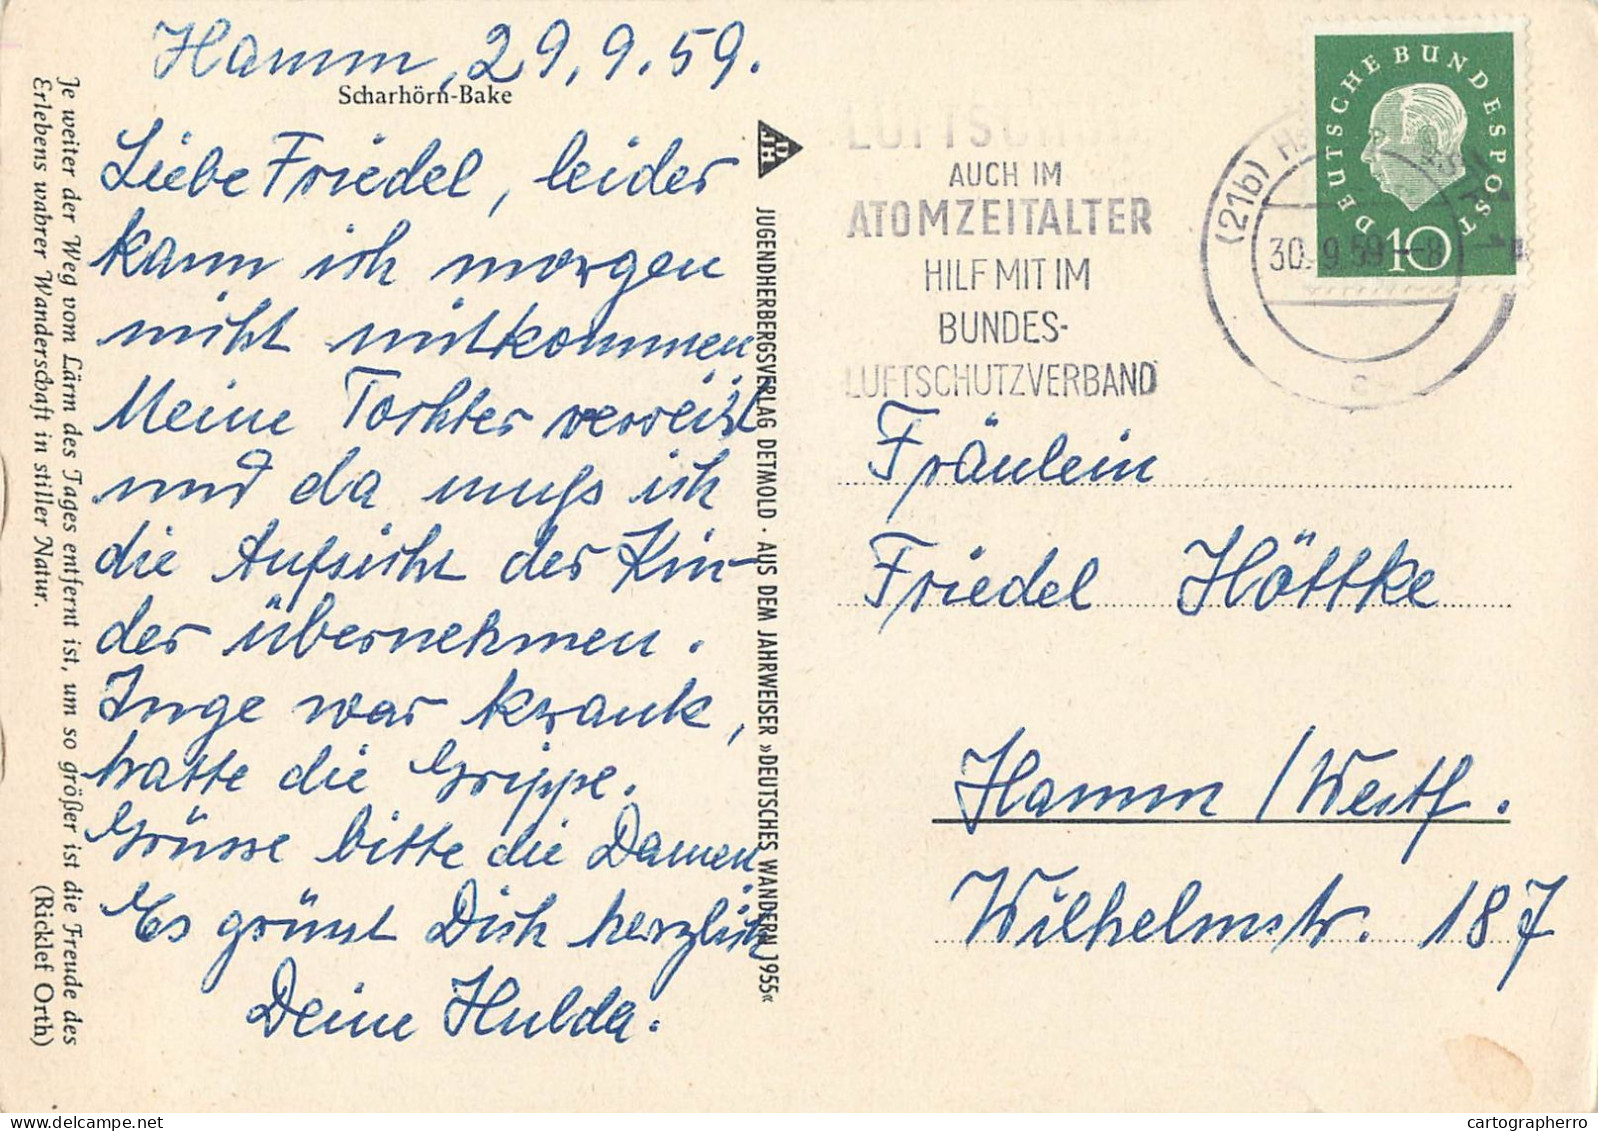 Hamm, 29.9.59.
Scharhörn-Bake
Liebe Friedel, leider
kann ich morgen
nicht mitkommen
Meine Tochter verreist
und da muss ich
die Aufsicht der Kin-
der übernehmen.
Inge war krank,
hatte die Grippe.
Grüsse bitte die Damen
Es grüsst Dich herzlich
Deine Hulda.
Je weiter der Weg vom Lärm des Tages entfernt ist, um so größer ist die Freude des
Erlebens wahrer Wanderschaft in stiller Natur.
(Ricklef Orth)
DJH
JUGENDHERBERGSVERLAG DETMOLD · AUS DEM JAHRWEISER »DEUTSCHES WANDERN 1955«
LUFTSCHUTZ
AUCH IM
ATOMZEITALTER
HILF MIT IM
BUNDES-
LUFTSCHUTZVERBAND
(21b)
30.9.59-8
c
DEUTSCHE BUNDESPOST
10
Fräulein
Friedel Höttke
Hamm / Westf.
Wilhelmstr. 187
cartographerro